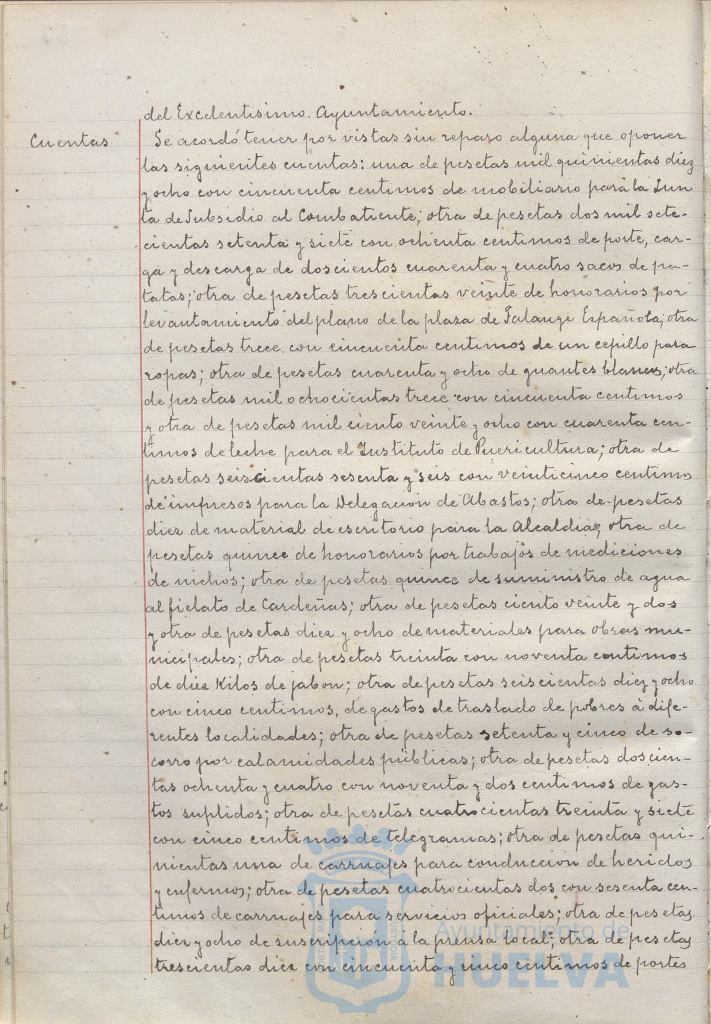 del Excelentisimo Ayuntamiento.
Cuentas
Se acordó tener por vistas sin reparo alguna que oponer
las siguientes cuentas: una de pesetas mil quinientas diez
y ocho con cincuenta centimos de mobiliario para la Jun
ta de Subsidio al Combatiente; otra de pesetas dos mil sete-
cientas setenta y siete con ochenta centimos de porte, car-
ga y descarga de doscientos cuarenta y cuatro sacos de pa-
tatas; otra de pesetas trescientas veinte de honorarios por
levantamiento del plano de la plaza de Falange Española; otra
de pesetas trece con cincuenta centimos de un cepillo para
ropas; otra de pesetas cuarenta y ocho de guantes blancos; otra
de pesetas mil ochocientas trece con cincuenta centimos
y otra de pesetas mil ciento veinte y ocho con cuarenta cen-
timos de leche para el Instituto de Puericultura; otra de
pesetas seiscientas sesenta y seis con veinticinco centimos
de impresos para la Delegacion de Abastos; otra de pesetas
diez de material de escritorio para la Alcaldia; otra de
pesetas quince de honorarios por trabajos de mediciones
de nichos; otra de pesetas quince de suministro de agua
al fielato de Cardeñas; otra de pesetas ciento veinte y dos
y otra de pesetas diez y ocho de materiales para obras mu-
nicipales; otra de pesetas treinta con noventa centimos
de diez Kilos de jabon; otra de pesetas seiscientas diez y ocho
con cinco centimos, de gastos de traslado de pobres á dife-
rentes localidades; otra de pesetas setenta y cinco de so-
corro por calamidades públicas; otra de pesetas doscien-
tas ochenta y cuatro con noventa y dos centimos de gas-
tos suplidos; otra de pesetas cuatrocientas treinta y siete
con cinco centimos de telegramas; otra de pesetas qui-
nientas una de carruajes para conduccion de heridos
y enfermos; otra de pesetas cuatrocientas dos con sesenta cen-
timos de carruajes para servicios oficiales; otra de pesetas
diez y ocho de suscripción á la prensa local; otra de pesetas
trescientas diez con cincuenta y cinco centimos de portes
Ayuntamiento de
HUELVA